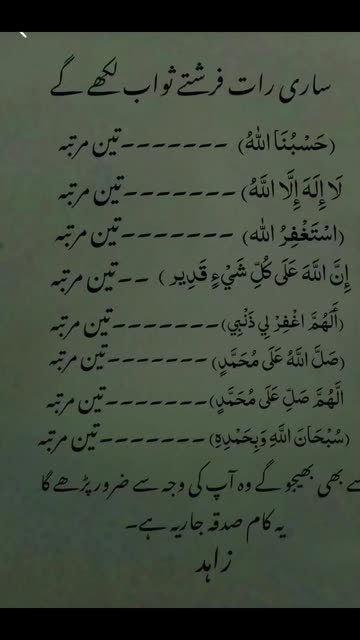 ساری رات فرشتے ثواب لکھے گے
(حَسْبُنَا اللهُ) -------تین مرتبہ
لَا إِلَهَ إِلَّا اللَّهُ) -------تین مرتبہ
(اسْتَغْفِرُ الله) -------تین مرتبہ
إِنَّ اللَّهَ عَلَى كُلِّ شَيْءٍ قَدِير ) --تین مرتبہ
(أَلَهُمَّ اغْفِرْ لِي ذَنْبِي)-------تین مرتبہ
(صَلَ اللَّهُ عَلَى مُحَمَّدٍ) -------تین مرتبہ
الَّهُمَّ صَلِّ عَلَى مُحَمَّدٍ)-------تین مرتبہ
(سُبْحَانَ اللَّهِ وَبِحَمْدِهِ)-------تین مرتبہ
بھی بھیجو گے وہ آپ کی وجہ سے ضرور پڑھے گا
یہ کام صدقہ جاریہ ہے۔
زاہد